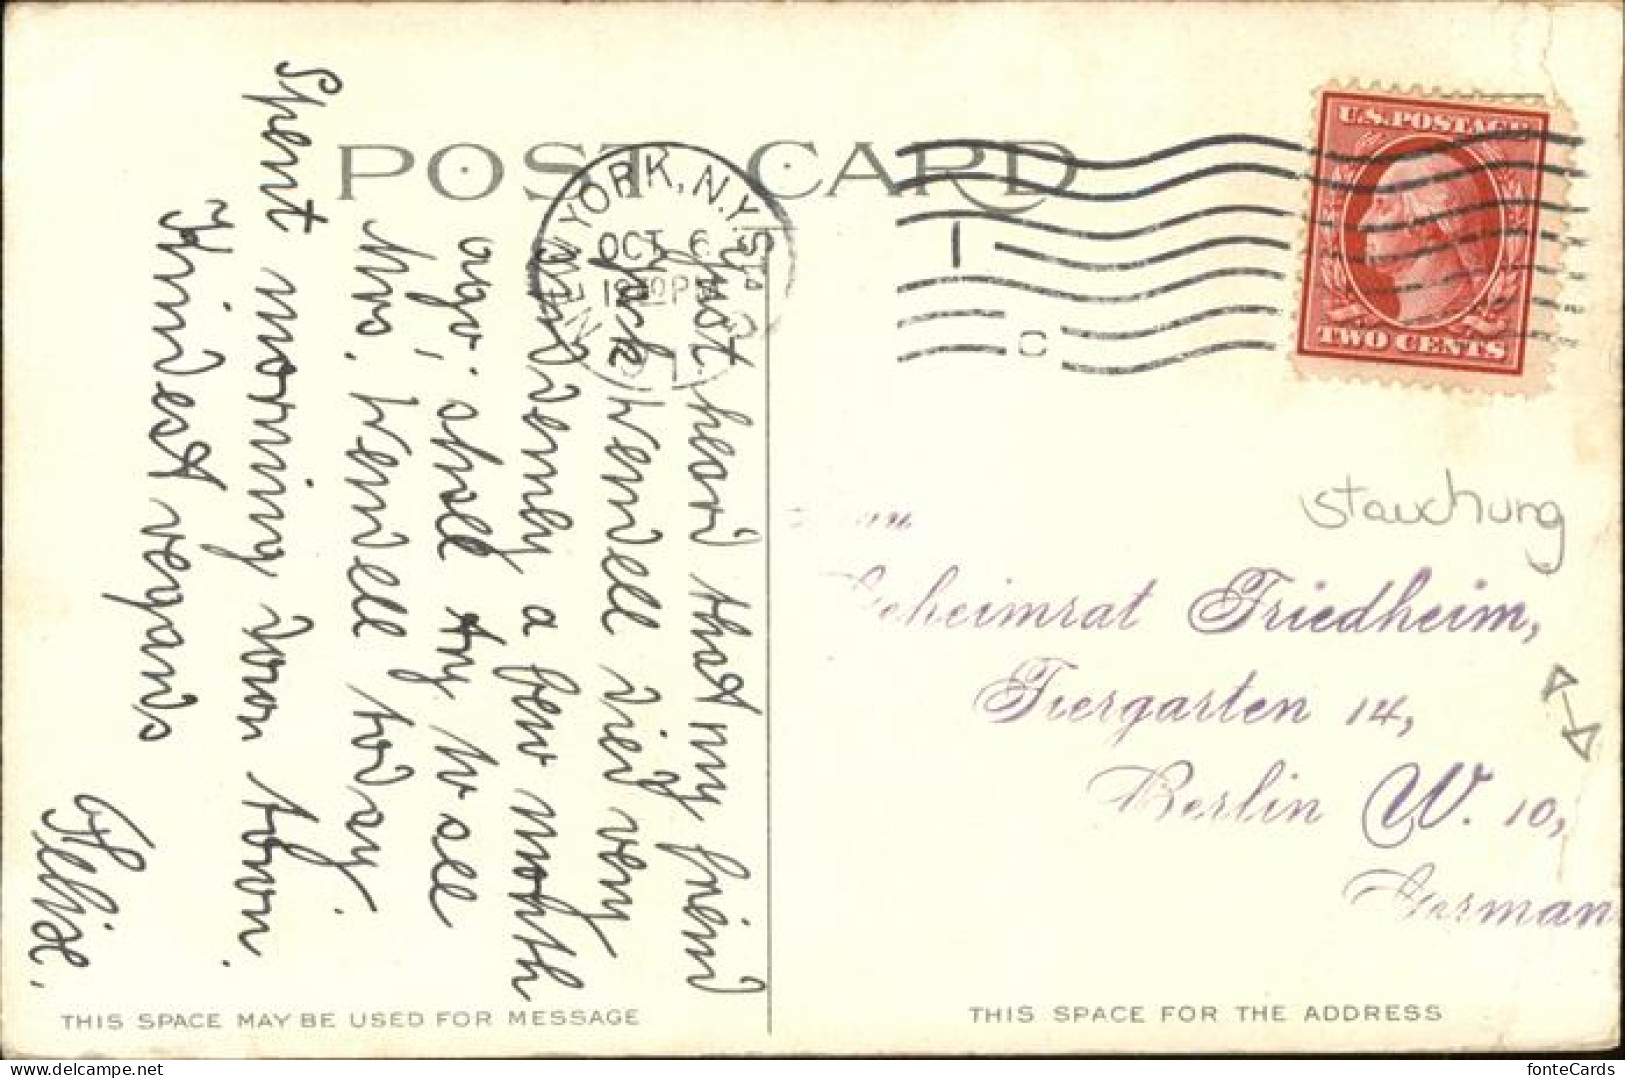 POST CARD
NEW YORK, N.Y. STA
OCT 6
U.S. POSTAGE
TWO CENTS
Just heard that my friend
Jack Wendell died very
suddenly a few month
ago, shall try to see
Mrs. Wendell today.
Spent morning down town.
Kindest regards
Felix.
Stauchung
Geheimrat Friedheim,
Tiergarten 14,
Berlin W. 10,
German
THIS SPACE MAY BE USED FOR MESSAGE
THIS SPACE FOR THE ADDRESS
fonteCards